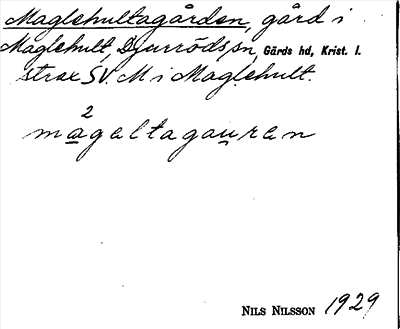 Maglehultagården, gård i
Maglehult, Djurröds sn, Gärds hd, Krist. l.
strax SV. M i Maglehult.
2
magaltagauran
NILS NILSSON 1929